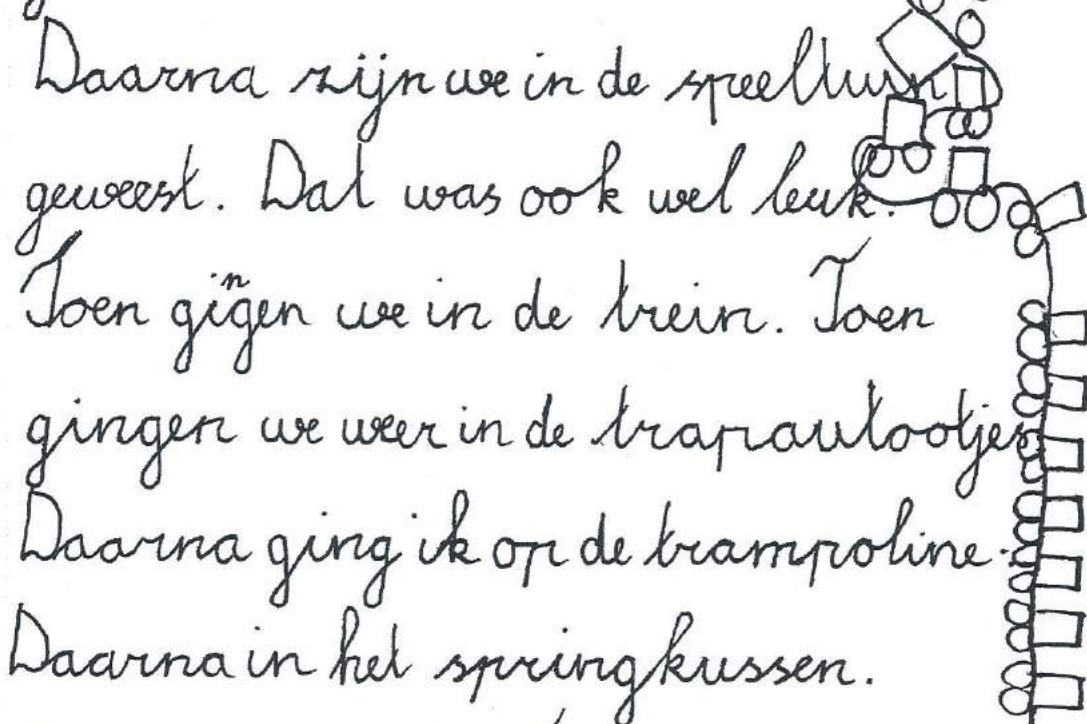 Daarna zijn we in de speeltuin
geweest. Dat was ook wel leuk.
Toen gingen we in de trein. Toen
gingen we weer in de trapautootjes
Daarna ging ik op de trampoline.
Daarna in het springkussen.